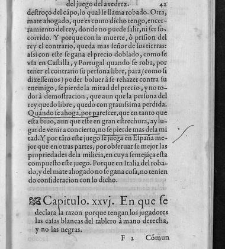 del juego del axedrez. 42
destroço del cãpo, lo qual se llama robado. Otra,
mate ahogado, que es como dicho tengo, encer-
ramiento del rey, donde no puede salir, ni ser so-
corrido. Y porque con la muerte, ò prision del
rey el contrario, queda mas señor de los tierras:
assi con este se gana el precio doblado, como se
vsa en Castilla, y Portugal quando se roba, por
tener el contrario su persona libre, para, como si
dixessemos poder boluer à se rehazer contra el
enemigo, se pierde la mitad del precio, y no to-
do: demanera que se dize mate robado, que que-
do la persona libre, quedo con grandissima perdida.
Quando se ahoga, por parescer, que en tanto que
esta biuo, aun que este en gran estrechura, ay lu-
gar de venir a concierto, no se pierde mas de la mi
tad. Y por tãto este juego se juega en España me-
jor que en otras partes, por obseruar se mejor las
propriedades de la milicia, en cuya semejança esta
compuesto este juego. Porque en Italia del roba-
do, y del mate ahogado no se gana cosa, no tenien
do consideracion con lo dicho.
Capitulo. xxvj. En que se
declara la razon porque tengan los jugadores
las casas blancas del tablero à mano derecha,
y no las negras.
F 2 Cómun